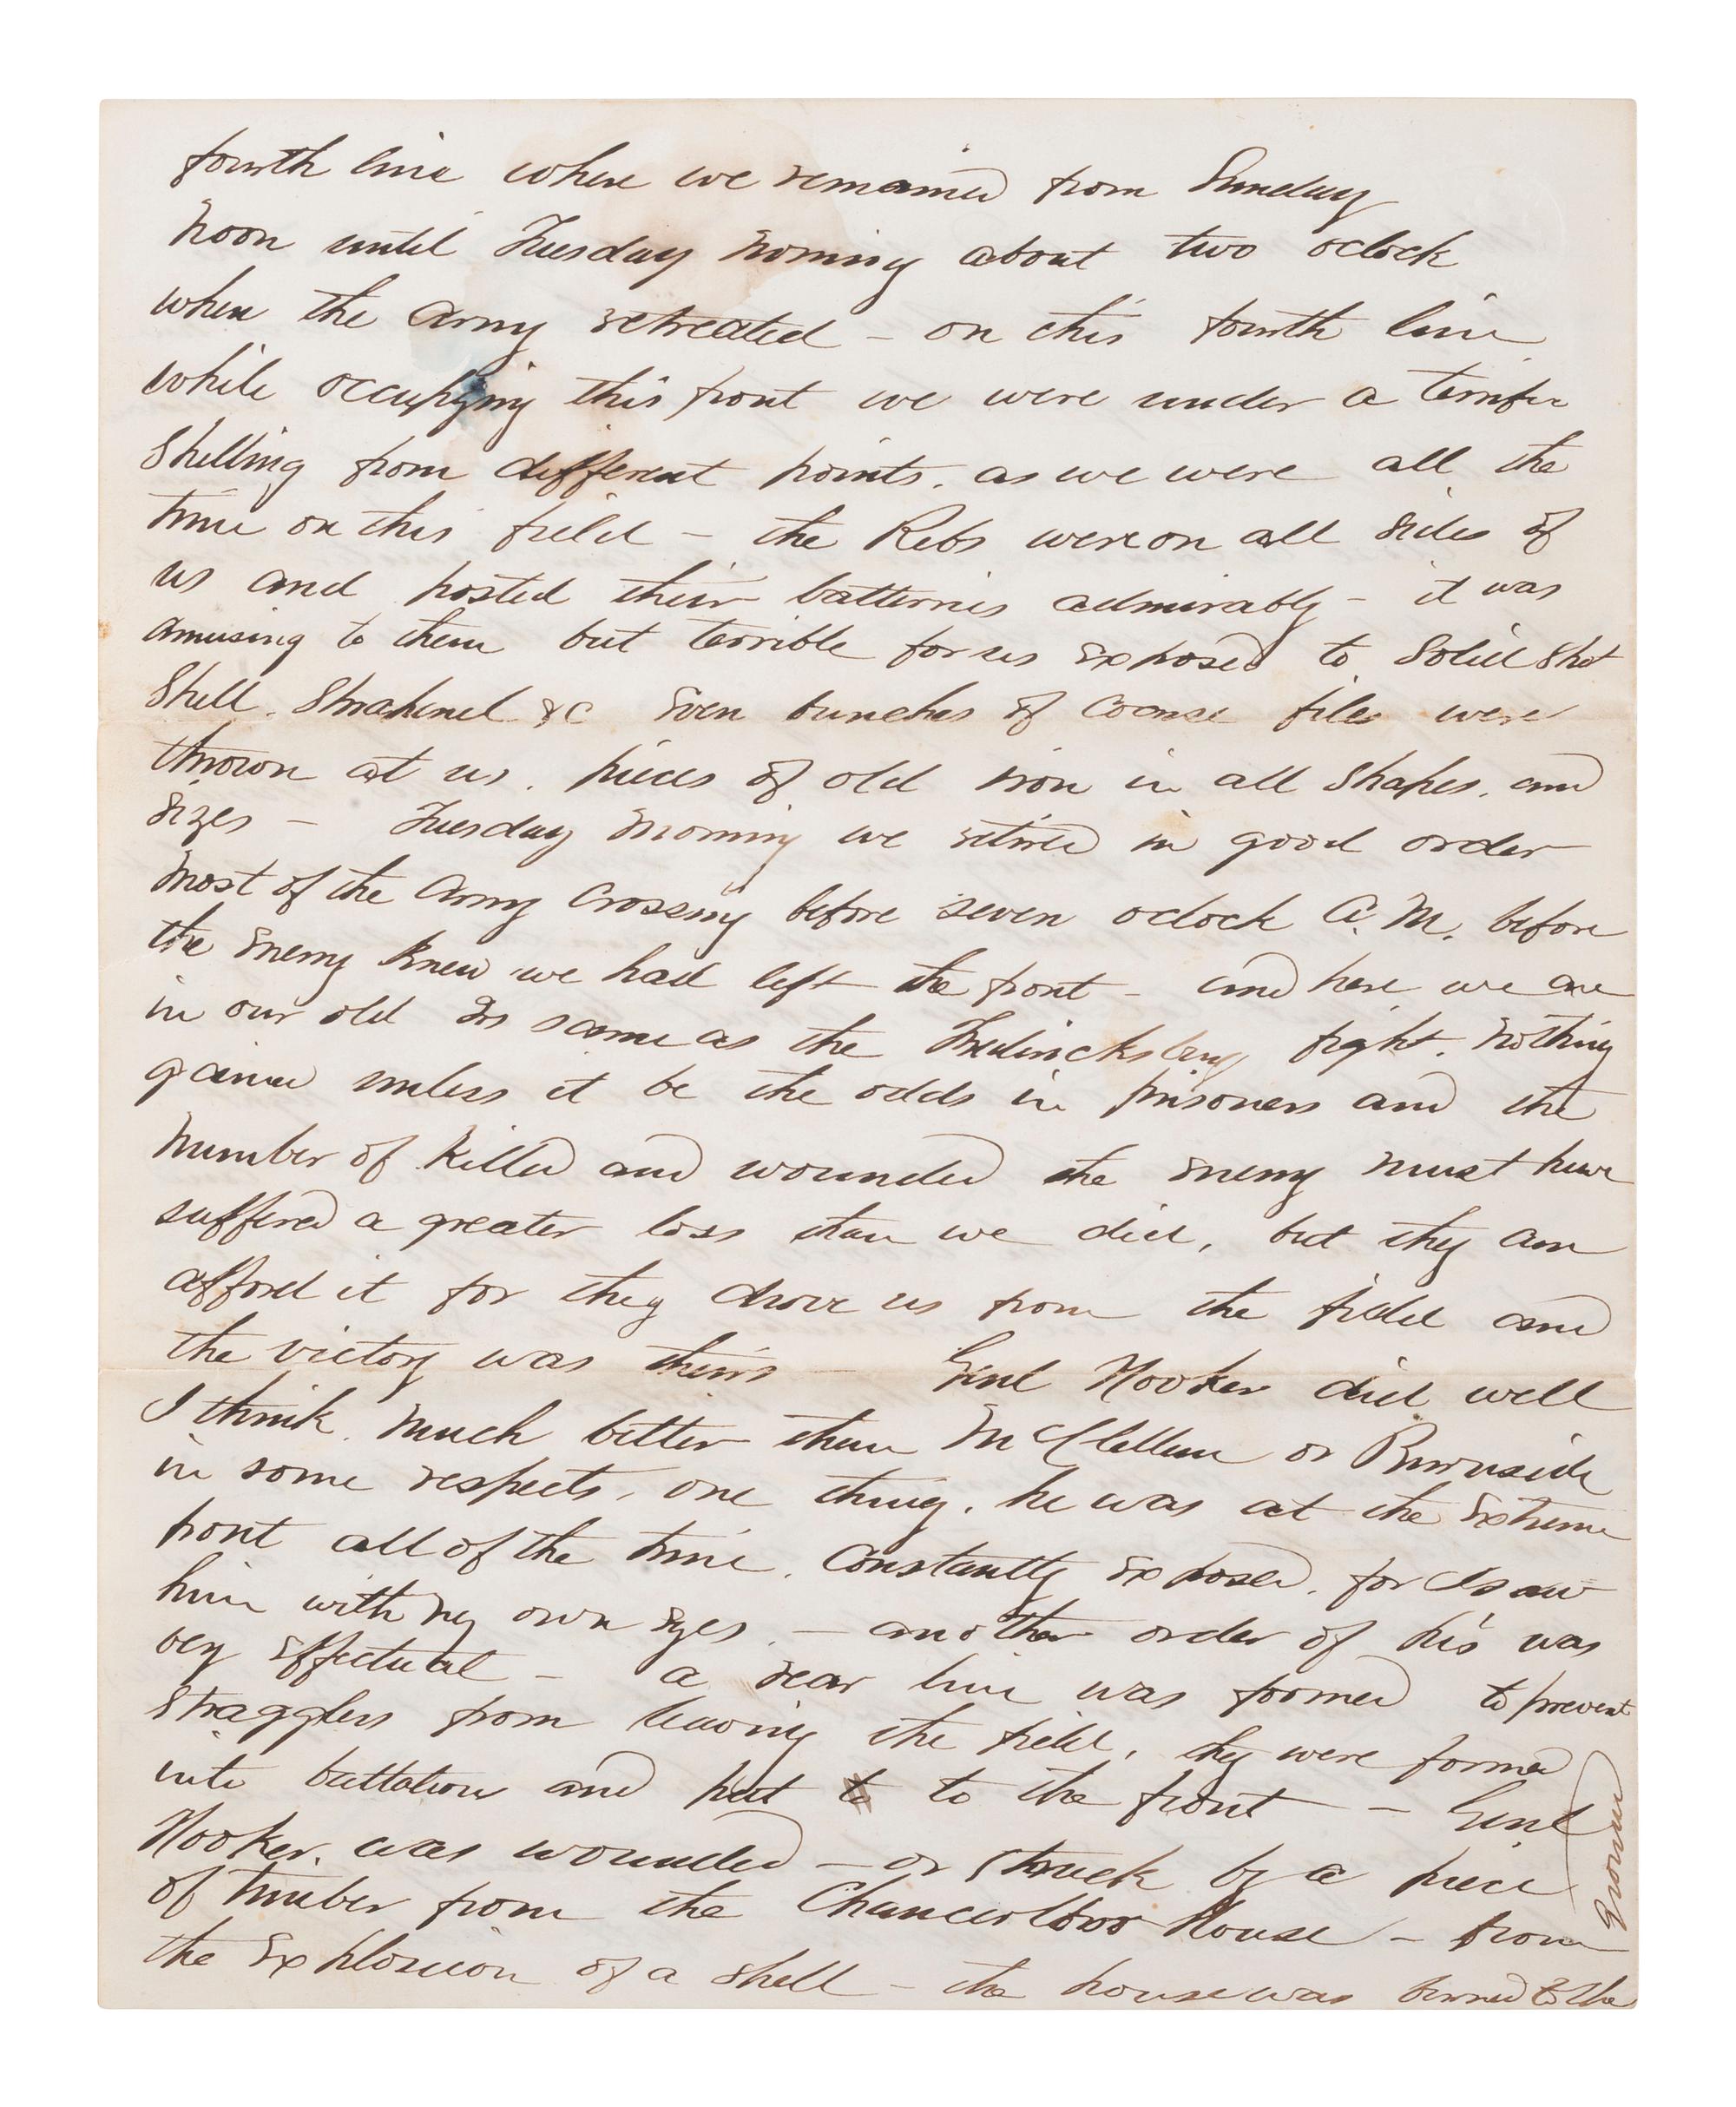 fourth line where we remained from Sunday
noon until Tuesday morning about two oclock
when the army retreated - on this fourth line
while occupying this front we were under a terrific
shelling from different points. as we were all the
time on this field - the Rebs were on all sides of
us and posted their batteries admirably - it was
amusing to them but terrible for us exposed to solid shot
shell. shrapnel &c even bunches of coarse files were
thrown at us. pieces of old iron in all shapes. and
sizes - Tuesday morning we retired in good order
most of the army crossing before seven oclock A.M. before
the enemy knew we had left the front - and here we are
in our old same as the Fredericksburg fight. nothing
gained unless it be the odds in prisoners and the
number of killed and wounded the enemy must have
suffered a greater loss than we did, but they can
afford it for they drove us from the field and
the victory was theirs Genl Hooker did well
I think. much better than McClellan or Burnside
in some respects, one thing. he was at the extreme
front all of the time. constantly exposed. for I saw
him with my own eyes. - another order of his was
very effectual - a rear line was formed to prevent
stragglers from leaving the field. they were formed
into battalions and put to the front - Genl
Hooker. was wounded - or struck by a piece
of timber from the Chancerllor House - from
the explosion of a shell - the house was burned to the
ground